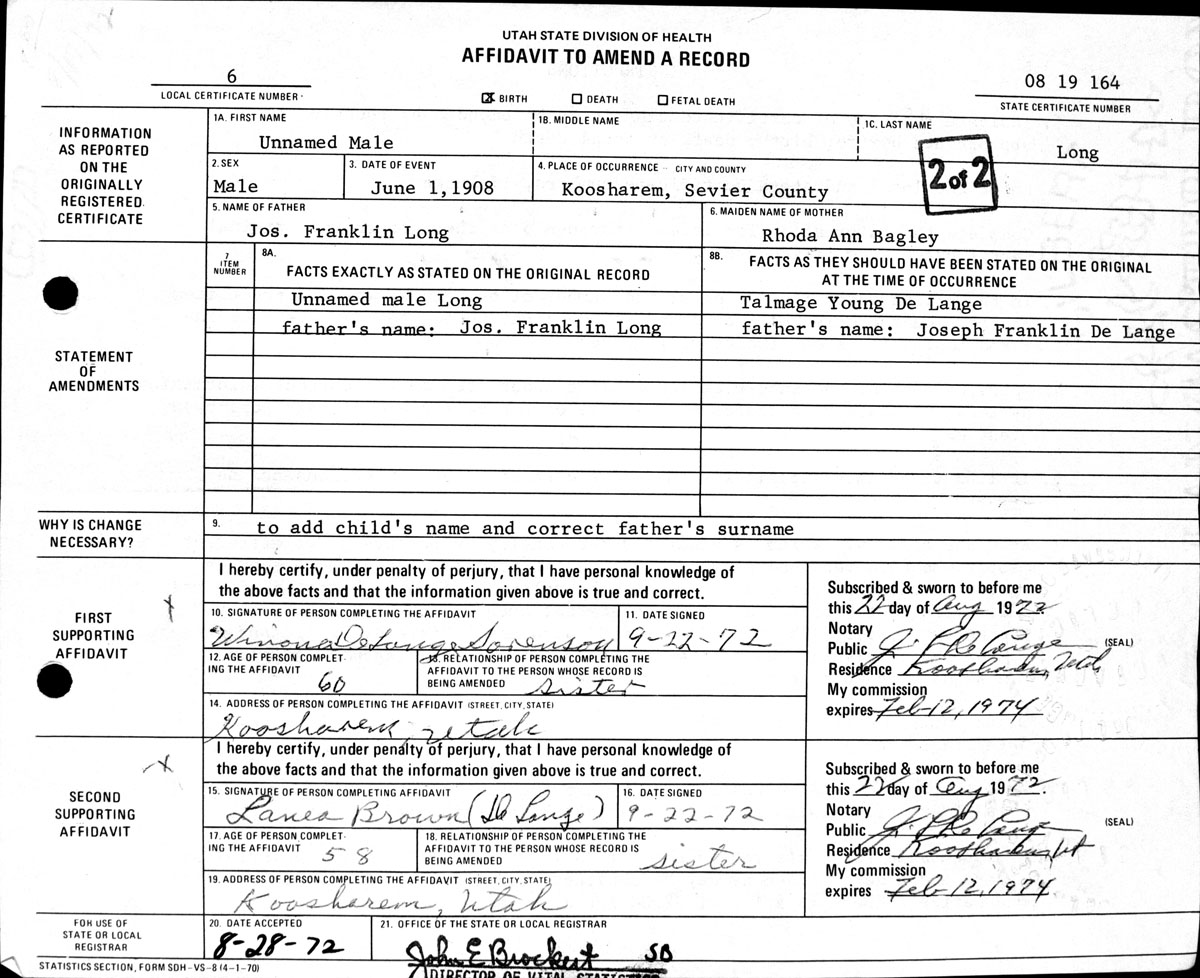 UTAH STATE DIVISION OF HEALTH
AFFIDAVIT TO AMEND A RECORD
6
LOCAL CERTIFICATE NUMBER
☒ BIRTH ☐ DEATH ☐ FETAL DEATH
08 19 164
STATE CERTIFICATE NUMBER
INFORMATION AS REPORTED ON THE ORIGINALLY REGISTERED CERTIFICATE
1A. FIRST NAME
Unnamed Male
1B. MIDDLE NAME
1C. LAST NAME
Long
2 of 2
2. SEX
Male
3. DATE OF EVENT
June 1,1908
4. PLACE OF OCCURRENCE - CITY AND COUNTY
Koosharem, Sevier County
5. NAME OF FATHER
Jos. Franklin Long
6. MAIDEN NAME OF MOTHER
Rhoda Ann Bagley
STATEMENT OF AMENDMENTS
7 ITEM NUMBER
8A.
FACTS EXACTLY AS STATED ON THE ORIGINAL RECORD
8B.
FACTS AS THEY SHOULD HAVE BEEN STATED ON THE ORIGINAL
AT THE TIME OF OCCURRENCE
Unnamed male Long
Talmage Young De Lange
father's name: Jos. Franklin Long
father's name: Joseph Franklin De Lange
WHY IS CHANGE NECESSARY?
9. to add child's name and correct father's surname
FIRST SUPPORTING AFFIDAVIT
I hereby certify, under penalty of perjury, that I have personal knowledge of
the above facts and that the information given above is true and correct.
10. SIGNATURE OF PERSON COMPLETING THE AFFIDAVIT
Winona DeLange Sorenson
11. DATE SIGNED
9-22-72
12. AGE OF PERSON COMPLETING THE AFFIDAVIT
60
13. RELATIONSHIP OF PERSON COMPLETING THE
AFFIDAVIT TO THE PERSON WHOSE RECORD IS
BEING AMENDED
sister
14. ADDRESS OF PERSON COMPLETING THE AFFIDAVIT (STREET, CITY, STATE)
Koosharem, Utah
Subscribed & sworn to before me
this 22 day of Aug 1972
Notary
Public
(SEAL)
Residence Koosharem, Utah
My commission
expires Feb-12, 1974
SECOND SUPPORTING AFFIDAVIT
I hereby certify, under penalty of perjury, that I have personal knowledge of
the above facts and that the information given above is true and correct.
15. SIGNATURE OF PERSON COMPLETING AFFIDAVIT
Lanea Brown (De Lange)
16. DATE SIGNED
9-22-72
17. AGE OF PERSON COMPLETING THE AFFIDAVIT
58
18. RELATIONSHIP OF PERSON COMPLETING THE
AFFIDAVIT TO THE PERSON WHOSE RECORD IS
BEING AMENDED
sister
19. ADDRESS OF PERSON COMPLETING THE AFFIDAVIT (STREET, CITY, STATE)
Koosharem, Utah
Subscribed & sworn to before me
this 22 day of Aug 1972.
Notary
Public
(SEAL)
Residence Koosharem, Ut
My commission
expires Feb-12, 1974
FOR USE OF STATE OR LOCAL REGISTRAR
20. DATE ACCEPTED
8-28-72
21. OFFICE OF THE STATE OR LOCAL REGISTRAR
John E Brockert SB
DIRECTOR OF VITAL STATISTICS
STATISTICS SECTION, FORM SDH-VS-8 (4-1-70)